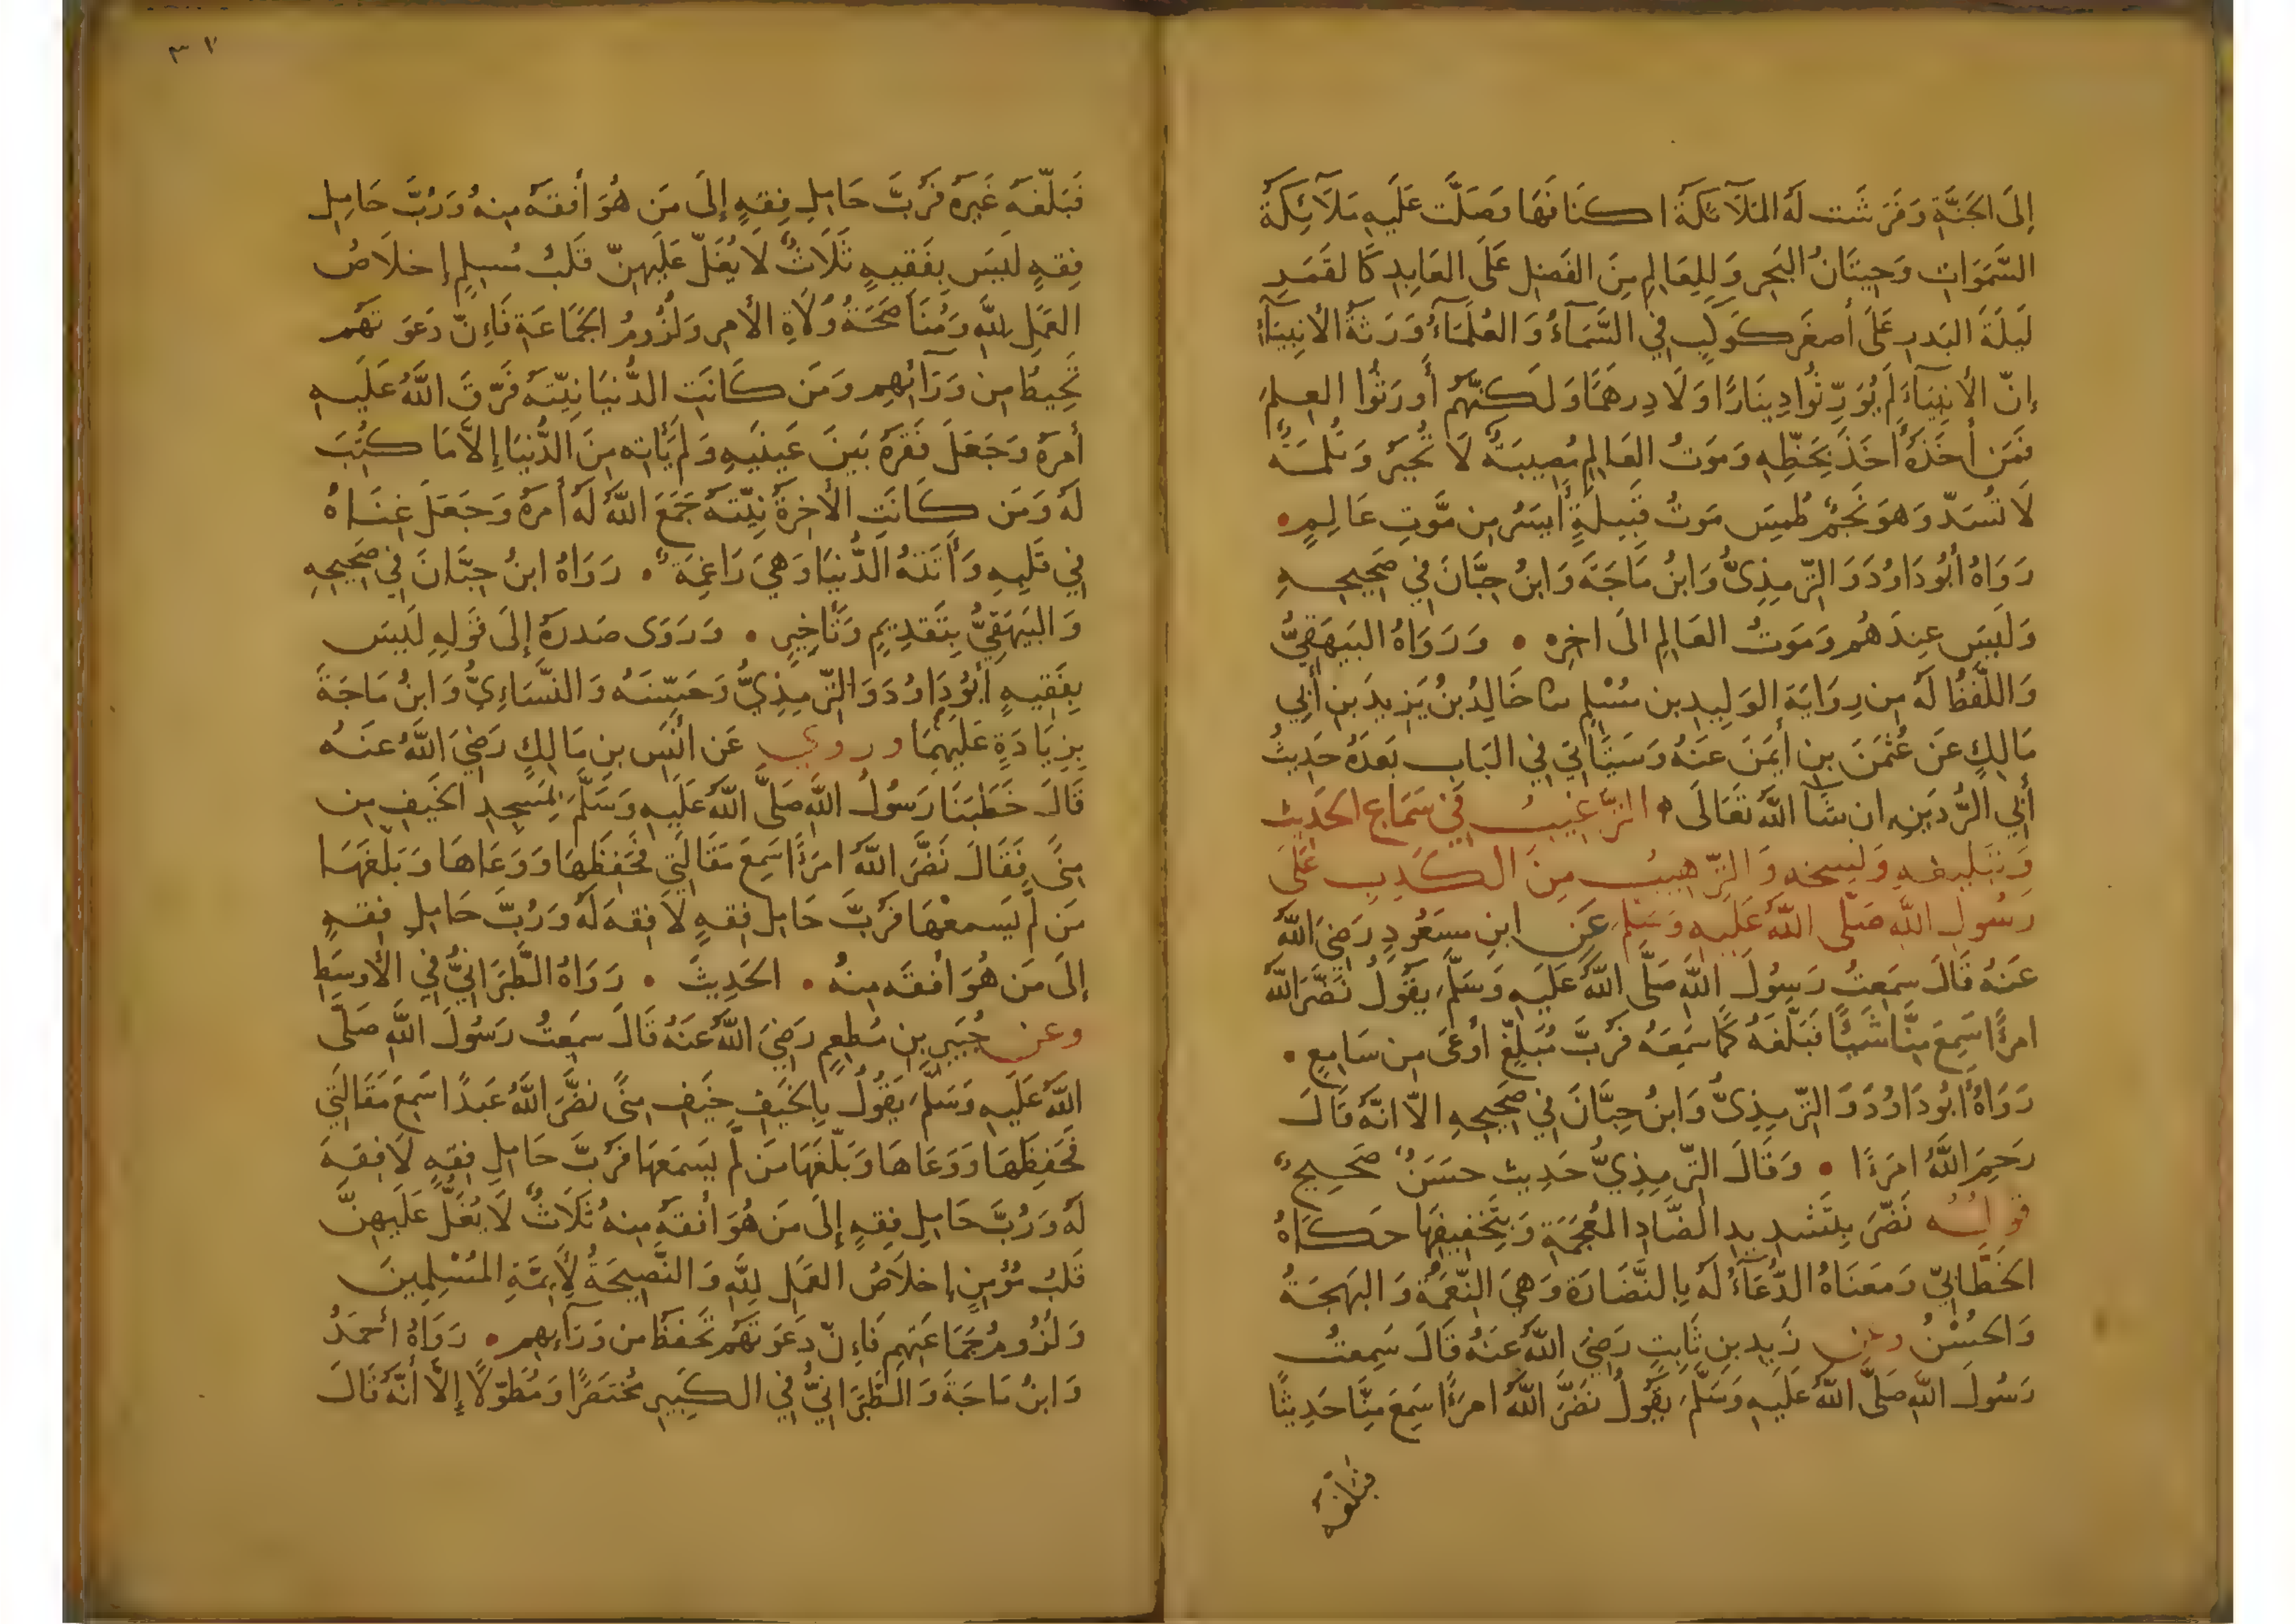 إلَى الجَنَّةِ وَفَرَشَت لَهُ المَلَآئِكَةُ اكنَافَهَا وَصَلَّت عَلَيهِ مَلَآئِكَةُ
السَّمَوَاتِ وَحِيتَانُ البَحرِ وَلِلعَالِمِ مِنَ الفَضلِ عَلَى العَابِدِ كَالقَمَرِ
لَيلَةَ البَدرِ عَلَى أصغَرِ كَوكَبٍ فِي السَّمَآءِ وَالعُلَمَآءُ وَرَثَةُ الأنبِيَآءِ
إنّ الأنبِيَآءَ لَم يُوَرِّثُوا دِينَارًا وَلَا دِرهَمًا وَلَكِنَّهُم أورَثُوا العِلمَ
فَمَن أخَذَهُ أخَذَ بِحَظِّهِ وَمَوتُ العَالِمِ مُصِيبَةٌ لَا تُجبَرُ وَثُلمَةٌ
لَا تُسَدّ وَهوَ نَجمٌ طُمِسَ مَوتُ قَبِيلَةٍ أيسَرُ مِن مَّوتِ عَالِمٍ •
رَوَاهُ أبُو دَاوُدَ وَالتِّرمِذِيُّ وَابنُ مَاجَةَ وَابنُ حِبَّانَ فِي صَحِيحِهِ
وَلَيسَ عِندَهُم وَمَوتُ العَالِمِ الَى اخِرِه • وَرَوَاهُ البَيهَقِيُّ
وَاللَّفظُ لَهُ مِن رِوَايَة الوَلِيدِ بن مُسْلِمٍ ثنا خَالِدُ بنُ يَزِيدَ بنِ أبِي
مَالِكٍ عَن عُثمَنَ بنِ أيمَنَ عَنهُ وَسَيَأتِي فِي البَابِ بَعدَهُ حَدِيثُ
أبِي الرُّدَينِ ان شَآ اللَّهُ تَعَالَى • التَّرغِيبُ فِي سَمَاعِ الحَدِيثِ
وَتَبلِيغِهِ وَنَسخِهِ وَالتَّرهِيبُ مِنَ الكَذِبِ عَلَى
رَسُولِ اللَّهِ صَلَّى اللَّهُ عَلَيهِ وَسَلَّمَ عَنِ ابنِ مسعُودٍ رَضِيَ اللَّهُ
عَنهُ قَالَ سَمِعتُ رَسُولَ اللَّهِ صَلَّى اللَّهُ عَلَيهِ وَسَلَّمَ يَقُولُ نَضَّرَ اللَّهُ
امرَءًا سَمِعَ مِنَّا شَيئًا فَبَلَّغَهُ كَمَا سَمِعَهُ فَرُبَّ مُبَلَّغٍ أوعَى مِن سَامِعٍ •
رَوَاهُ أبُو دَاوُدَ وَالتِّرمِذِيُّ وَابنُ حِبَّانَ فِي صَحِيحِهِ الاّ انَّهُ قَالَ
رَحِمَ اللَّهُ امرَءًا • وَقَالَ التِّرمِذِيُّ حَدِيث حسَنٌ صَحِيحٌ
قولُه نَضّرَ بِتَشدِيدِ الضَّادِ المُعجَمَةِ وَبِتَخفِيفِهَا حَكَاهُ
الخَطَّابِيّ وَمَعنَاهُ الدُّعَآءُ لَهُ بِالنَّضَارَة وَهِيَ النِّعمَةُ وَالبَهجَةُ
وَالحُسْنُ وعن زَيدِ بنِ ثَابِتٍ رَضِيَ اللَّهُ عَنهُ قَالَ سَمِعتُ
رَسُولَ اللَّهِ صَلَّى اللَّهُ عَلَيهِ وَسَلَّمَ يَقُولُ نَضَّرَ اللَّهُ امرَءًا سَمِعَ مِنَّا حَدِيثًا
فبَلّغَهُ
٣٧
فَبَلّغَهُ غَيرَهُ فَرُبَّ حَامِلِ فِقهٍ إلَى مَن هُوَ أفقَهُ مِنهُ وَرُبَّ حَامِلِ
فِقهٍ لَيسَ بِفَقِيهٍ ثَلَاثٌ لَا يُغَلّ عَلَيهِنّ قَلبُ مُسلِمٍ إخلَاصُ
العَمَلِ لِلَّهِ وَمُنَاصَحَةُ وُلَاةِ الأمرِ وَلُزُومُ الجَمَاعَةِ فَإنّ دَعوَتَهُم
تُحِيطُ مِن وَرَآئِهِم وَمَن كَانَتِ الدُّنيَا نِيَّتَهُ فَرَّقَ اللَّهُ عَلَيهِ
أمرَهُ وَجَعَلَ فَقرَهُ بَينَ عَينَيهِ وَلَم يَأتِه مِنَ الدُّنيَا إلاَّ مَا كُتِبَ
لَهُ وَمَن كَانَتِ الأخِرَةُ نِيّتَهُ جَمَعَ اللَّهُ لَهُ أمرَهُ وَجَعَلَ غِنَاهُ
فِي قَلبِهِ وَأتَتهُ الدُّنيَا وَهِيَ رَاغِمَةٌ • رَوَاهُ ابنُ حِبَّانَ فِي صَحِيحِهِ
وَالبَيهَقِيُّ بِتَقدِيمٍ وَتَأخِيرٍ • وَرَوَى صَدرَهُ إلَى قَولِهِ لَيسَ
بِفَقِيهٍ أبُو دَاوُدَ وَالتِّرمِذِيُّ وَحَسَّنَهُ وَالنَّسَاءِيُّ وَابنُ مَاجَةَ
بِزِيَادَةٍ عَلَيهِمَا وروي عَن أنَسِ بنِ مَالِكٍ رَضِيَ اللَّهُ عَنهُ
قَالَ خَطَبَنَا رَسُولُ اللَّهِ صَلَّى اللَّهُ عَلَيهِ وَسَلَّمَ بِمَسجِدِ الخَيفِ مِن
مِنًى فَقَالَ نَضَّرَ اللَّهُ امرَءًا سَمِعَ مَقَالَتِي فَحَفِظَهَا وَوَعَاهَا وَبَلَّغَهَا
مَن لَم يَسمعْهَا فَرُبَّ حَامِلِ فِقهٍ لاَ فِقهَ لَهُ وَرُبَّ حَامِلِ فِقهٍ
إلَى مَن هُوَ أفقَه مِنهُ • الحَدِيثَ • رَوَاهُ الطَّبَرَانِيُّ فِي الأَوسَطِ
وعن جُبَيرِ بنِ مُطعِمٍ رَضِيَ اللَّهُ عَنهُ قَالَ سمِعتُ رَسُولَ اللَّهِ صَلَّى
اللَّهُ عَلَيهِ وَسَلَّمَ يَقُولُ بِالخَيفِ خَيفِ مِنًى نَضَّرَ اللَّهُ عَبدًا سَمِعَ مَقَالَتِي
فَحَفِظَهَا وَوَعَاهَا وَبَلَّغَهَا مَن لَم يَسمَعهَا فَرُبَّ حَامِلِ فِقهٍ لَا فِقهَ
لَهُ وَرُبَّ حَامِلِ فِقهٍ إلَى مَن هُوَ أفقَهُ مِنهُ ثَلَاثٌ لَا يُغَلُّ عَلَيهِنَّ
قَلبُ مُؤمِنٍ إخلَاصُ العَمَلِ لِلَّهِ وَالنَّصِيحَةُ لِأَيِمَّةِ المُسْلِمِينَ
وَلُزُومُ جَمَاعَتِهِم فَإنّ دَعوَتَهُم تَحفَظُ من وَرَآءِهِم • رَوَاهُ أحمَدُ
وَابنُ مَاجَةَ وَالطَّبَرَانِيُّ فِي الكَبِيرِ مُختَصَرًا وَمُطَوَّلًا إلَّا أنَّهُ قَالَ